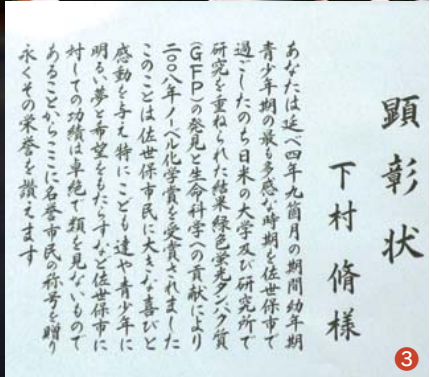 顕彰状
下村脩様
あなたは延べ四年九箇月の期間幼年期
青少年期の最も多感な時期を佐世保市で
過ごしたのち日米の大学及び研究所で
研究を重ねられた結果緑色蛍光タンパク質
(GFP)の発見と生命科学への貢献により
二〇〇八年ノーベル化学賞を受賞されました
このことは佐世保市民に大きな喜びと
感動を与え特にこども達や青少年に
明るい夢と希望をもたらすなど佐世保市に
対しての功績は卓絶で類を見ないもので
あることからここに名誉市民の称号を贈り
永くその栄誉を讃えます
3